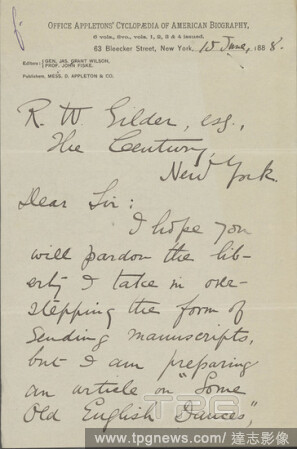 OFFICE APPLETONS' CYCLOPÆDIA OF AMERICAN BIOGRAPHY,
6 vols., 8vo, vols. 1, 2, 3 & 4 issued.
63 Bleecker Street, New York, 15 June, 1888.
Editors: GEN. JAS. GRANT WILSON,
PROF. JOHN FISKE.
Publishers, MESS. D. APPLETON & CO.
R. W Gilder, esq.,
The Century,
New York.
Dear Sir:
I hope you
will pardon the lib-
erty I take in over-
stepping the form of
sending manuscripts,
but I am preparing
an article on "Some
Old English Dances,"
TPG
www.tpgnews.com/達志影像